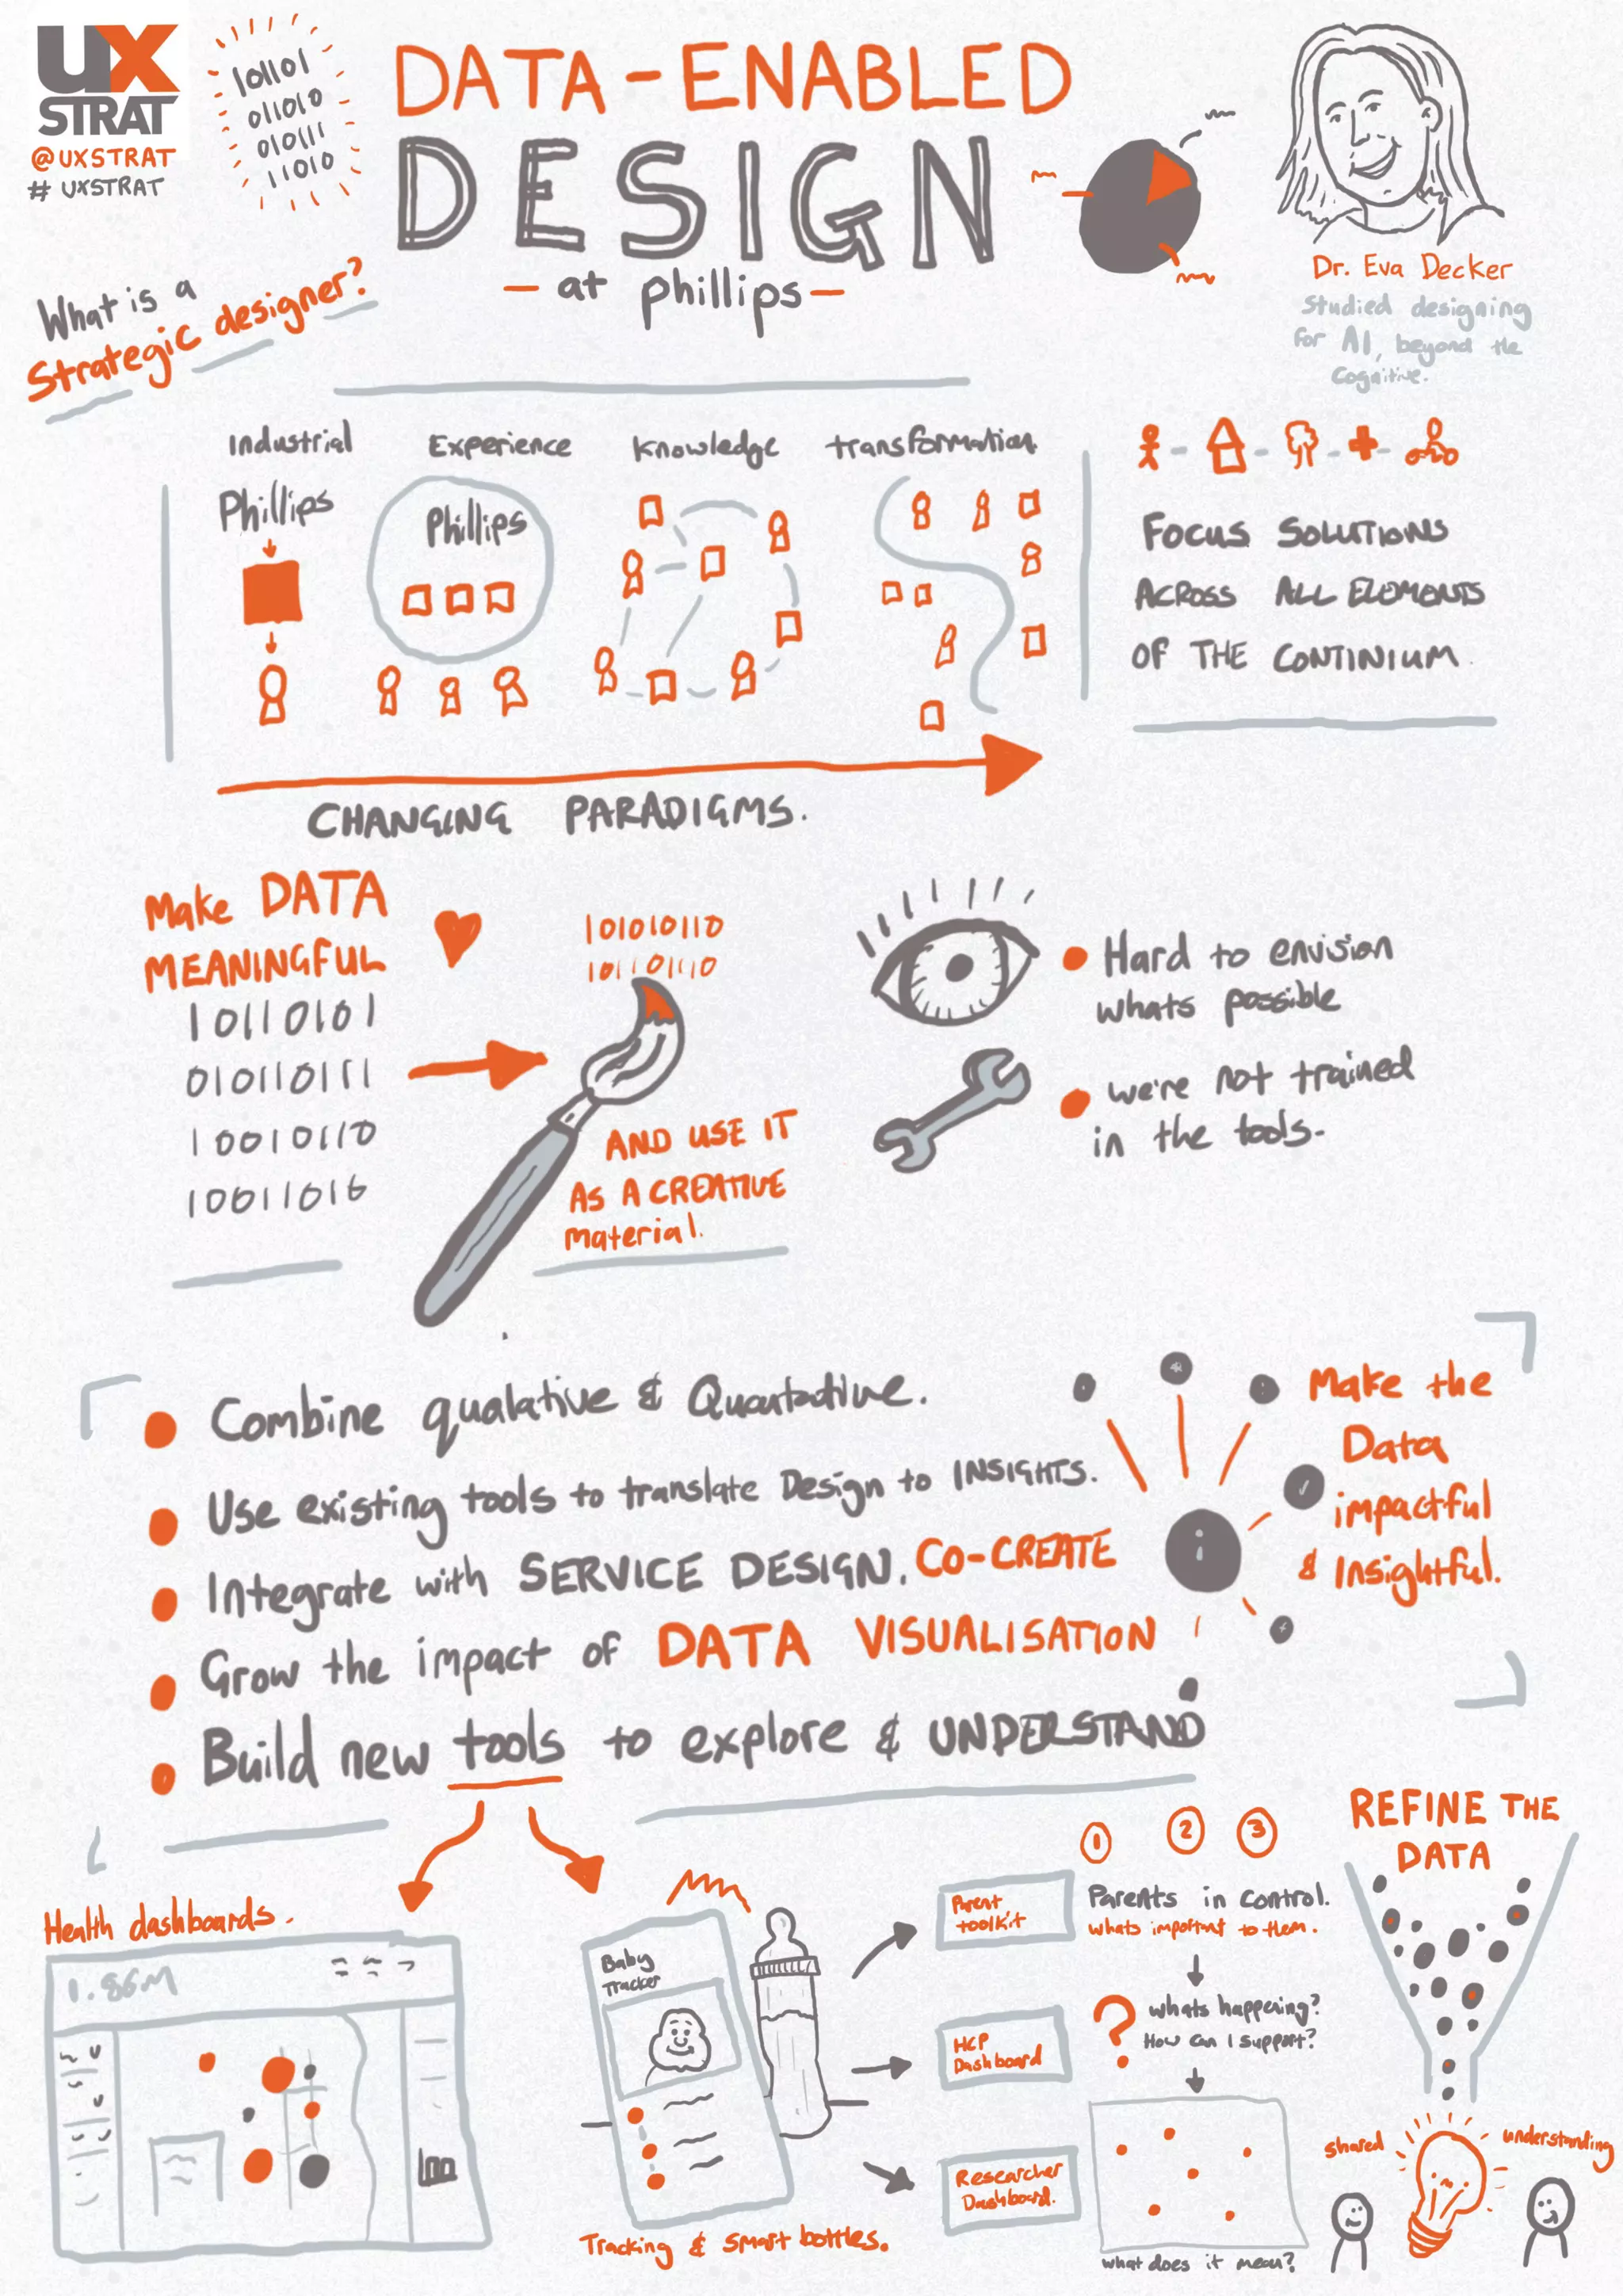 UX
STRAT
@UXSTRAT
# UXSTRAT
101101
011010
010111
11010
DATA-ENABLED
DESIGN
- at phillips -
Dr. Eva Decker
Studied designing
for AI, beyond the
Cognitive.
What is a
Strategic designer?
Industrial
Experience
Knowledge
transformation
Phillips
Phillips
FOCUS SOLUTIONS
ACROSS ALL ELEMENTS
OF THE CONTINIUM.
CHANGING PARADIGMS.
Make DATA
MEANINGFUL
10110101
010110111
10010110
10011016
101010110
10110110
AND USE IT
AS A CREATIVE
material.
Hard to envision
whats possible
we're not trained
in the tools.
Combine qualative & Quantative.
Use existing tools to translate Design to INSIGHTS.
Integrate with SERVICE DESIGN. CO-CREATE
Grow the impact of DATA VISUALISATION
Build new tools to explore & UNDERSTAND
i
Make the
Data
impactful
& Insightful.
Health dashboards.
1.86M
Baby
Tracker
Tracking & Smart bottles.
Parent
toolkit
HCP
Dashboard
Researcher
Dashboard.
1 2 3
Parents in control.
whats important to them.
? whats happening?
How can I support?
what does it mean?
REFINE THE
DATA
shared
understanding